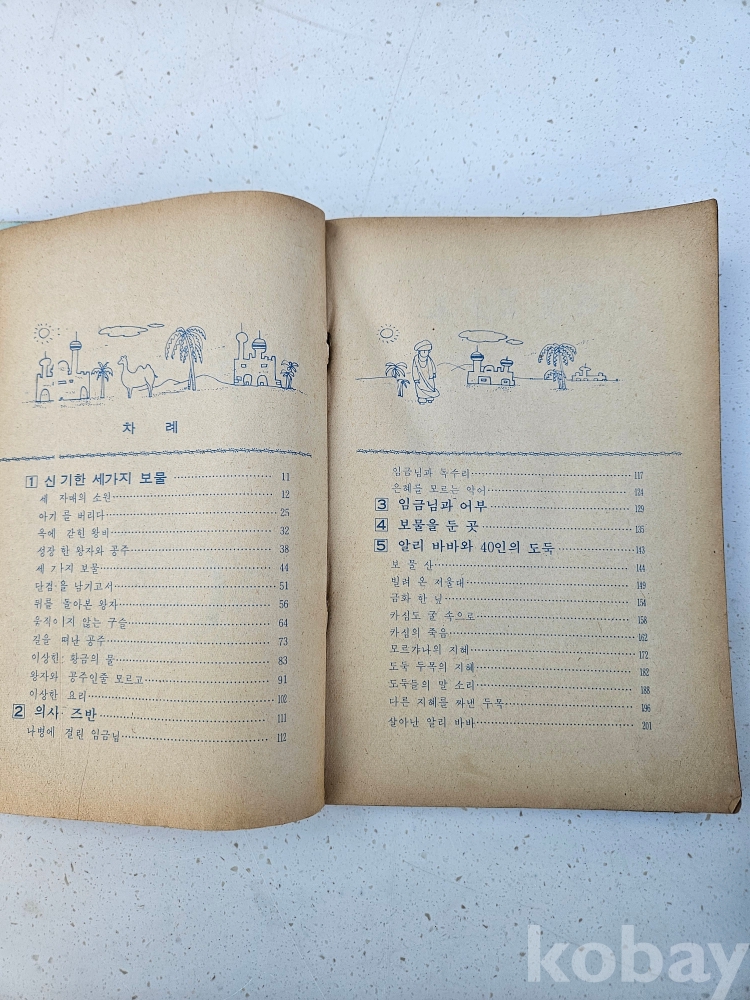 차 례
1 신기한 세가지 보물 11
세 자매의 소원 12
아기를 버리다 25
옥에 갇힌 왕비 32
성장한 왕자와 공주 38
세 가지 보물 44
단검을 남기고서 51
뒤를 돌아본 왕자 56
움직이지 않는 구슬 64
길을 떠난 공주 73
이상한 황금의 물 83
왕자와 공주인줄 모르고 91
이상한 요리 102
2 의사 즈반 111
나병에 걸린 임금님 112
임금님과 독수리 117
은혜를 모르는 악어 124
3 임금님과 어부 129
4 보물을 둔 곳 135
5 알리 바바와 40인의 도둑 143
보물산 144
빌려 온 저울대 149
금화 한 닢 154
카심도 굴 속으로 158
카심의 죽음 162
모르갸나의 지혜 172
도둑 두목의 지혜 182
도둑들의 말 소리 188
다른 지혜를 짜낸 두목 196
살아난 알리 바바 201
kobay